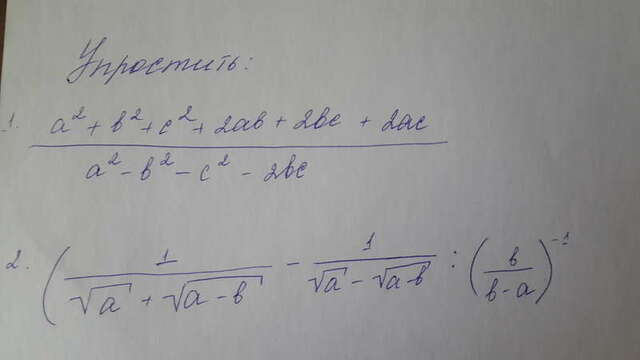 Упростить:
1. a² + b² + c² + 2ab + 2bc + 2ac
a² - b² - c² - 2bc
2. ( 1 / (√a + √a-b) - 1 / (√a - √a-b) : ( b / (b-a) )⁻¹